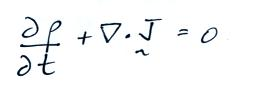 ∂ρ/∂t + ∇·J̰ = 0